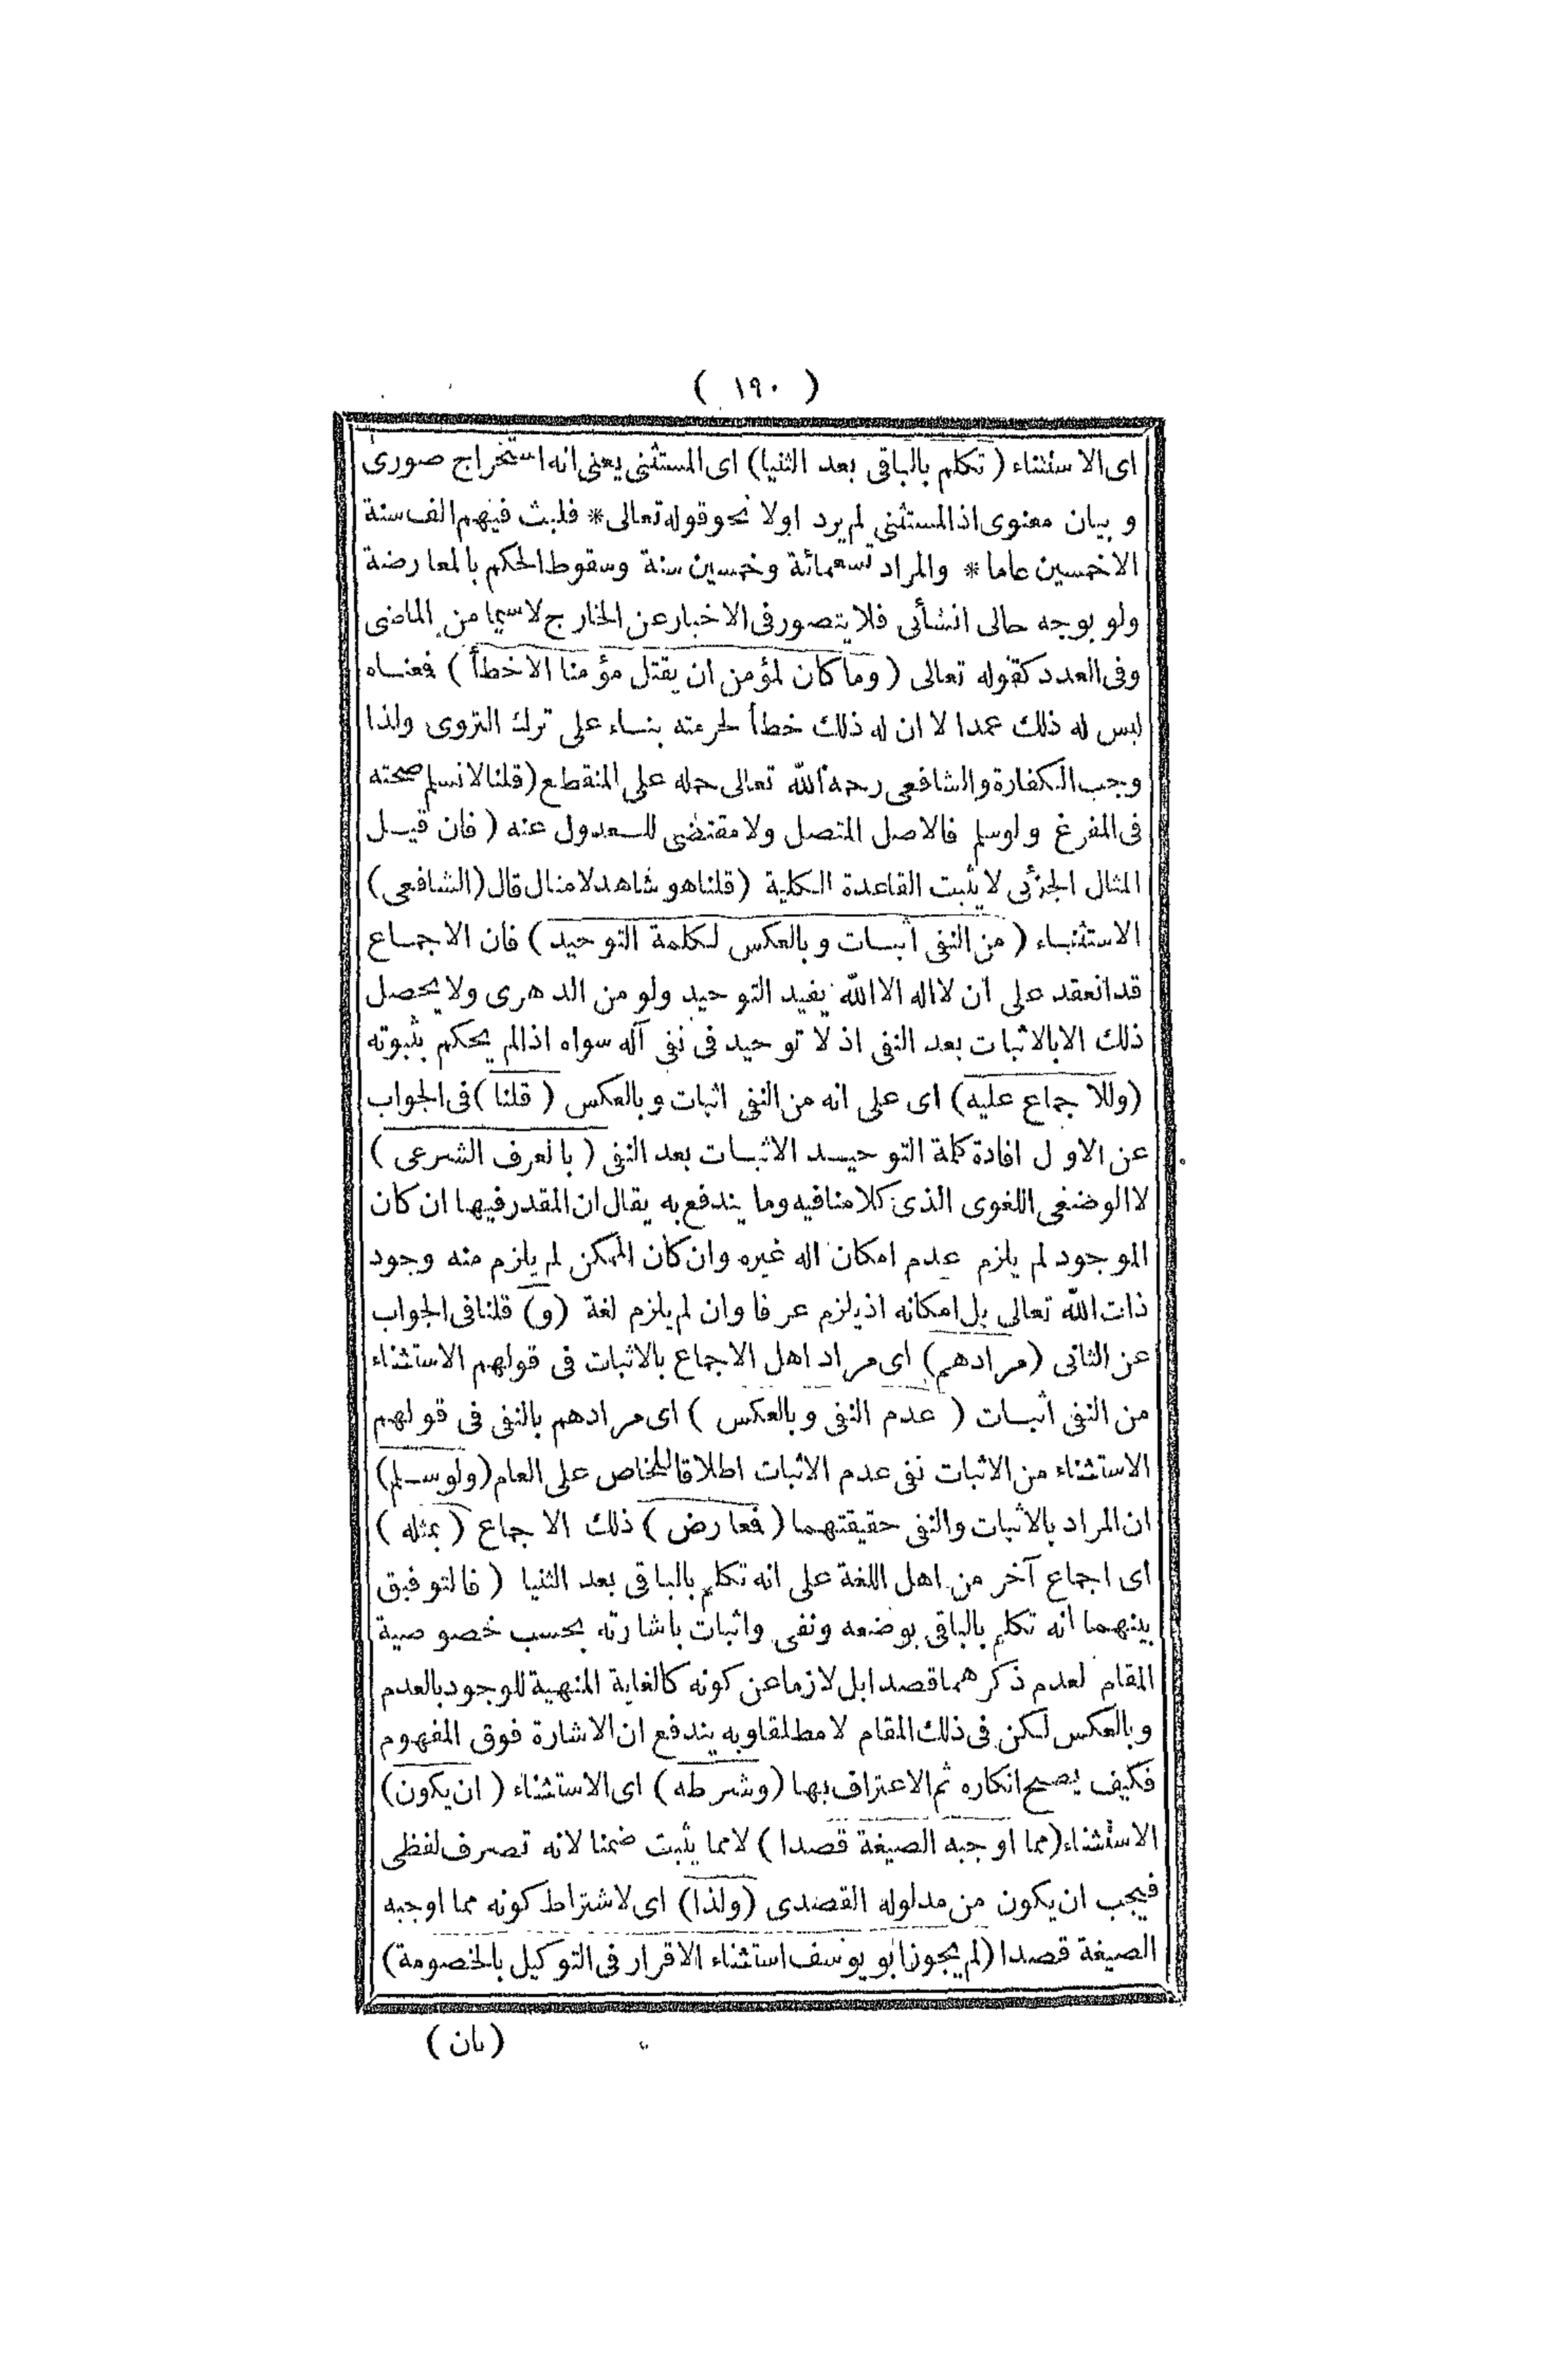 ( ١٩٠ )
اى الاستثناء ( تكلم بالباقى بعد الثنيا ) اى المستثنى يعنى انه استخراج صورى
و بيان معنوى اذ المستثنى لم يرد اولا نحو قوله تعالى * فلبث فيهم الف سنة
الا خمسين عاما * والمراد تسعمائة وخمسين سنة وسقوط الحكم بالمعارضة
ولو بوجه حالى انشأئى فلا يتصور فى الاخبار عن الخارج لاسيما من الماضى
وفى العدد كقوله تعالى ( وما كان لمؤمن ان يقتل مؤمنا الا خطأ ) فعنساه
لبس له ذلك عمدا لا ان له ذلك خطأ لحرمته بنساء على ترك التروى ولذا
وجب الكفارة والشافعى رحمه الله تعالى حمله على المنقطع ( قلنا لا نسلم صحته
فى المفرغ ولوسلم فالاصل المتصل ولا مقتضى للعدول عنه ( فان قيل
المثال الجزئى لا يثبت القاعدة الكلية ( قلنا هو شاهد لا منال قال ( الشافعى )
الاستثنباء ( من النفى اثبات وبالعكس لكلمة التوحيد ) فان الاجماع
قد انعقد على ان لا اله الا الله يفيد التوحيد ولو من الدهرى ولا يحصل
ذلك الا بالاثبات بعد النفى اذ لا توحيد فى نفى آله سواه اذا لم يحكم بثبوته
( وللاجماع عليه ) اى على انه من النفى اثبات وبالعكس ( قلنا ) فى الجواب
عن الاول افادة كلمة التوحيد الاثبات بعد النفى ( بالعرف الشرعى )
لا الوضعى اللغوى الذى كلامنا فيه وما يندفع به يقال ان المقدر فيها ان كان
الموجود لم يلزم عدم امكان اله غيره وان كان الممكن لم يلزم منه وجود
ذات الله تعالى بل امكانه اذ يلزم عرفا وان لم يلزم لغة ( و ) قلنا فى الجواب
عن الثانى ( مرادهم ) اى مراد اهل الاجماع بالاثبات فى قولهم الاستثناء
من النفى اثبات ( عدم النفى وبالعكس ) اى مرادهم بالنفى فى قولهم
الاستثناء من الاثبات نفى عدم الاثبات اطلاقا للخاص على العام ( ولو سلم )
ان المراد بالاثبات والنفى حقيقتهما ( فعارض ) ذلك الاجماع ( بمثله )
اى اجماع آخر من اهل اللغة على انه تكلم بالباقى بعد الثنيا ( فالتوفيق
بينهما انه تكلم بالباقى بوضعه ونفى واثبات باشارته بحسب خصوصية
المقام لعدم ذكرهما قصدا بل لازما عن كونه كالغاية المنهية للوجود بالعدم
وبالعكس لكن فى ذلك المقام لا مطلقا وبه يندفع ان الاشارة فوق المفهوم
فكيف يصح انكاره ثم الاعتراف بها ( وشرطه ) اى الاستثناء ( ان يكون )
الاستثناء ( مما اوجبه الصيغة قصدا ) لا مما يثبت ضمنا لانه تصرف لفظى
فيجب ان يكون من مدلوله القصدى ( ولذا ) اى لاشتراط كونه مما اوجبه
الصيغة قصدا ( لم يجوز ابو يوسف استثناء الاقرار فى التوكيل بالخصومة )
( بان )